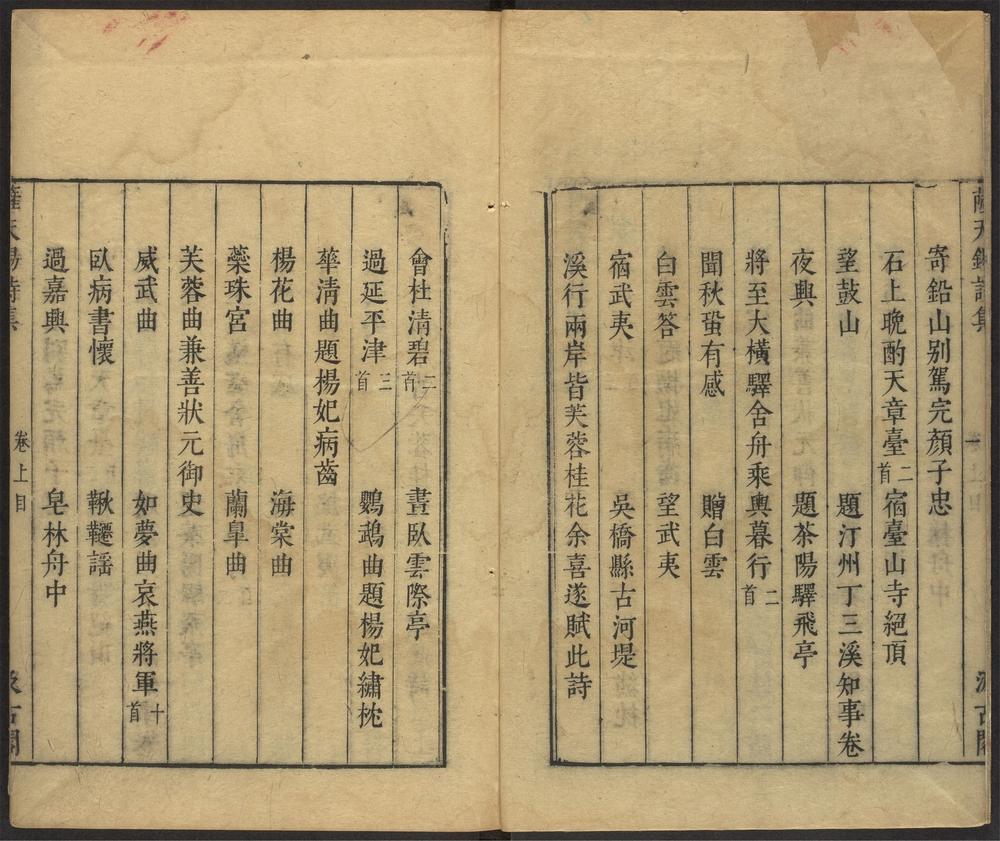 薩天錫詩集
汲古閣
寄鉛山别駕完顏子忠
石上晚酌天章臺二首 宿臺山寺絕頂
望鼓山 題汀州丁三溪知事卷
夜興 題茶陽驛飛亭
將至大橫驛舍舟乘輿暮行二首
聞秋蛩有感 贈白雲
白雲答 望武夷
宿武夷 吳橋縣古河堤
溪行兩岸皆芙蓉桂花余喜遂賦此詩
會杜清碧二首 晝臥雲際亭
過延平津三首 鸚鵡曲題楊妃繡枕
華清曲題楊妃病齒
楊花曲 海棠曲
蘂珠宮 蘭皐曲
芙蓉曲兼善狀元御史
威武曲 如夢曲哀燕將軍十首
臥病書懷 鞦韆謡
過嘉興 皂林舟中
薩天錫詩集 卷上目 汲古閣